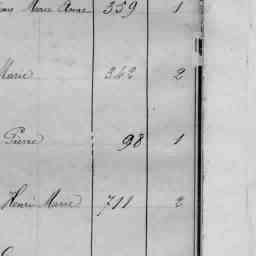 Marie Anne 359 1
Marie 342 2
Pierre 98 1
Henri Marie 711 2